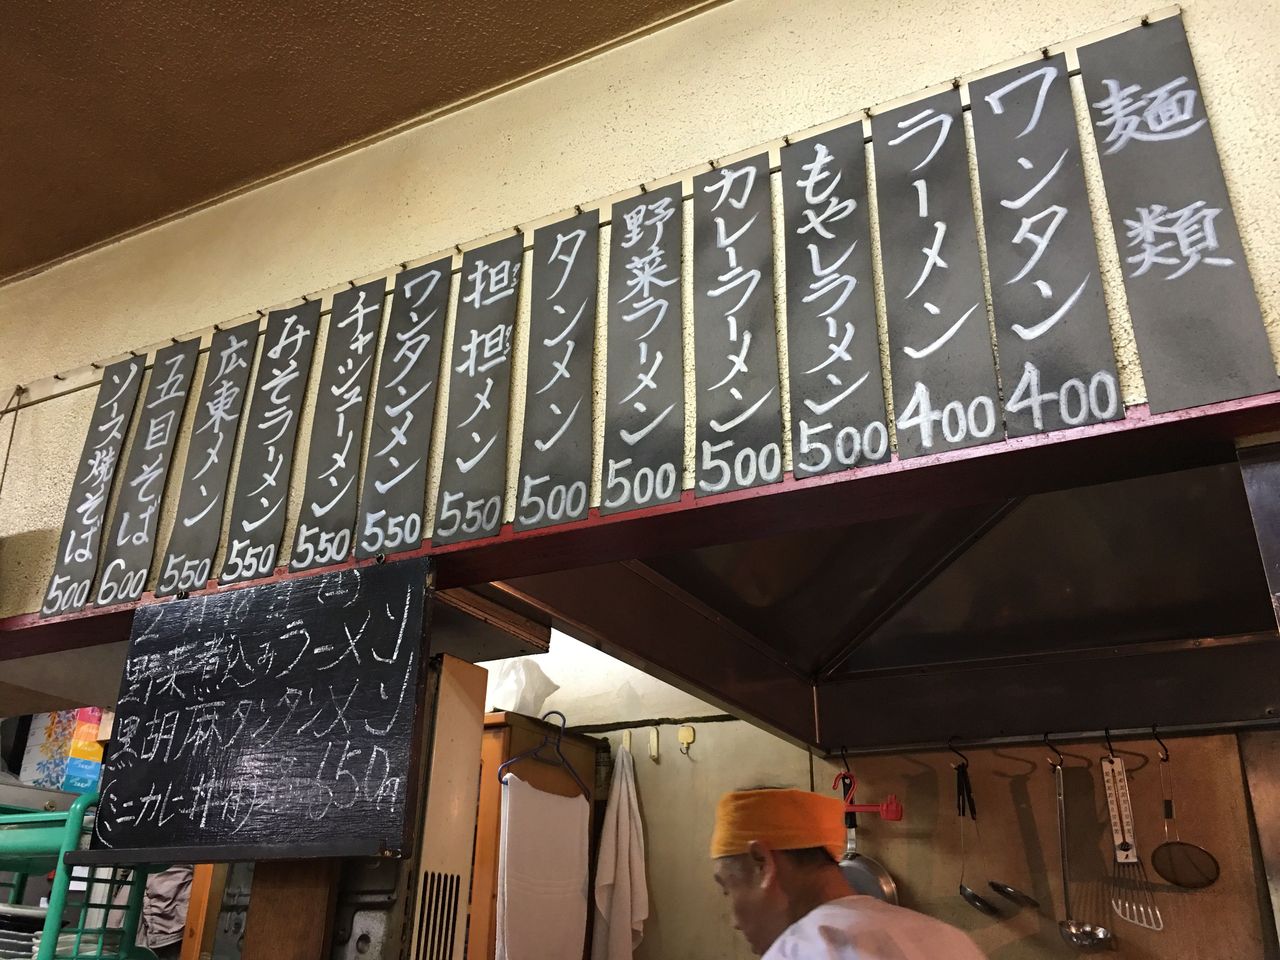 麺類
ワンタン 400
ラーメン 400
もやしラーメン 500
カレーラーメン 500
野菜ラーメン 500
タンメン 500
担担メン 550
ワンタンメン 550
チャシューメン 550
みそラーメン 550
広東メン 550
五目そば 600
ソース焼そば 500
野菜煮込みラーメン
黒胡麻タンタンメン
650円
ミニカレー丼付